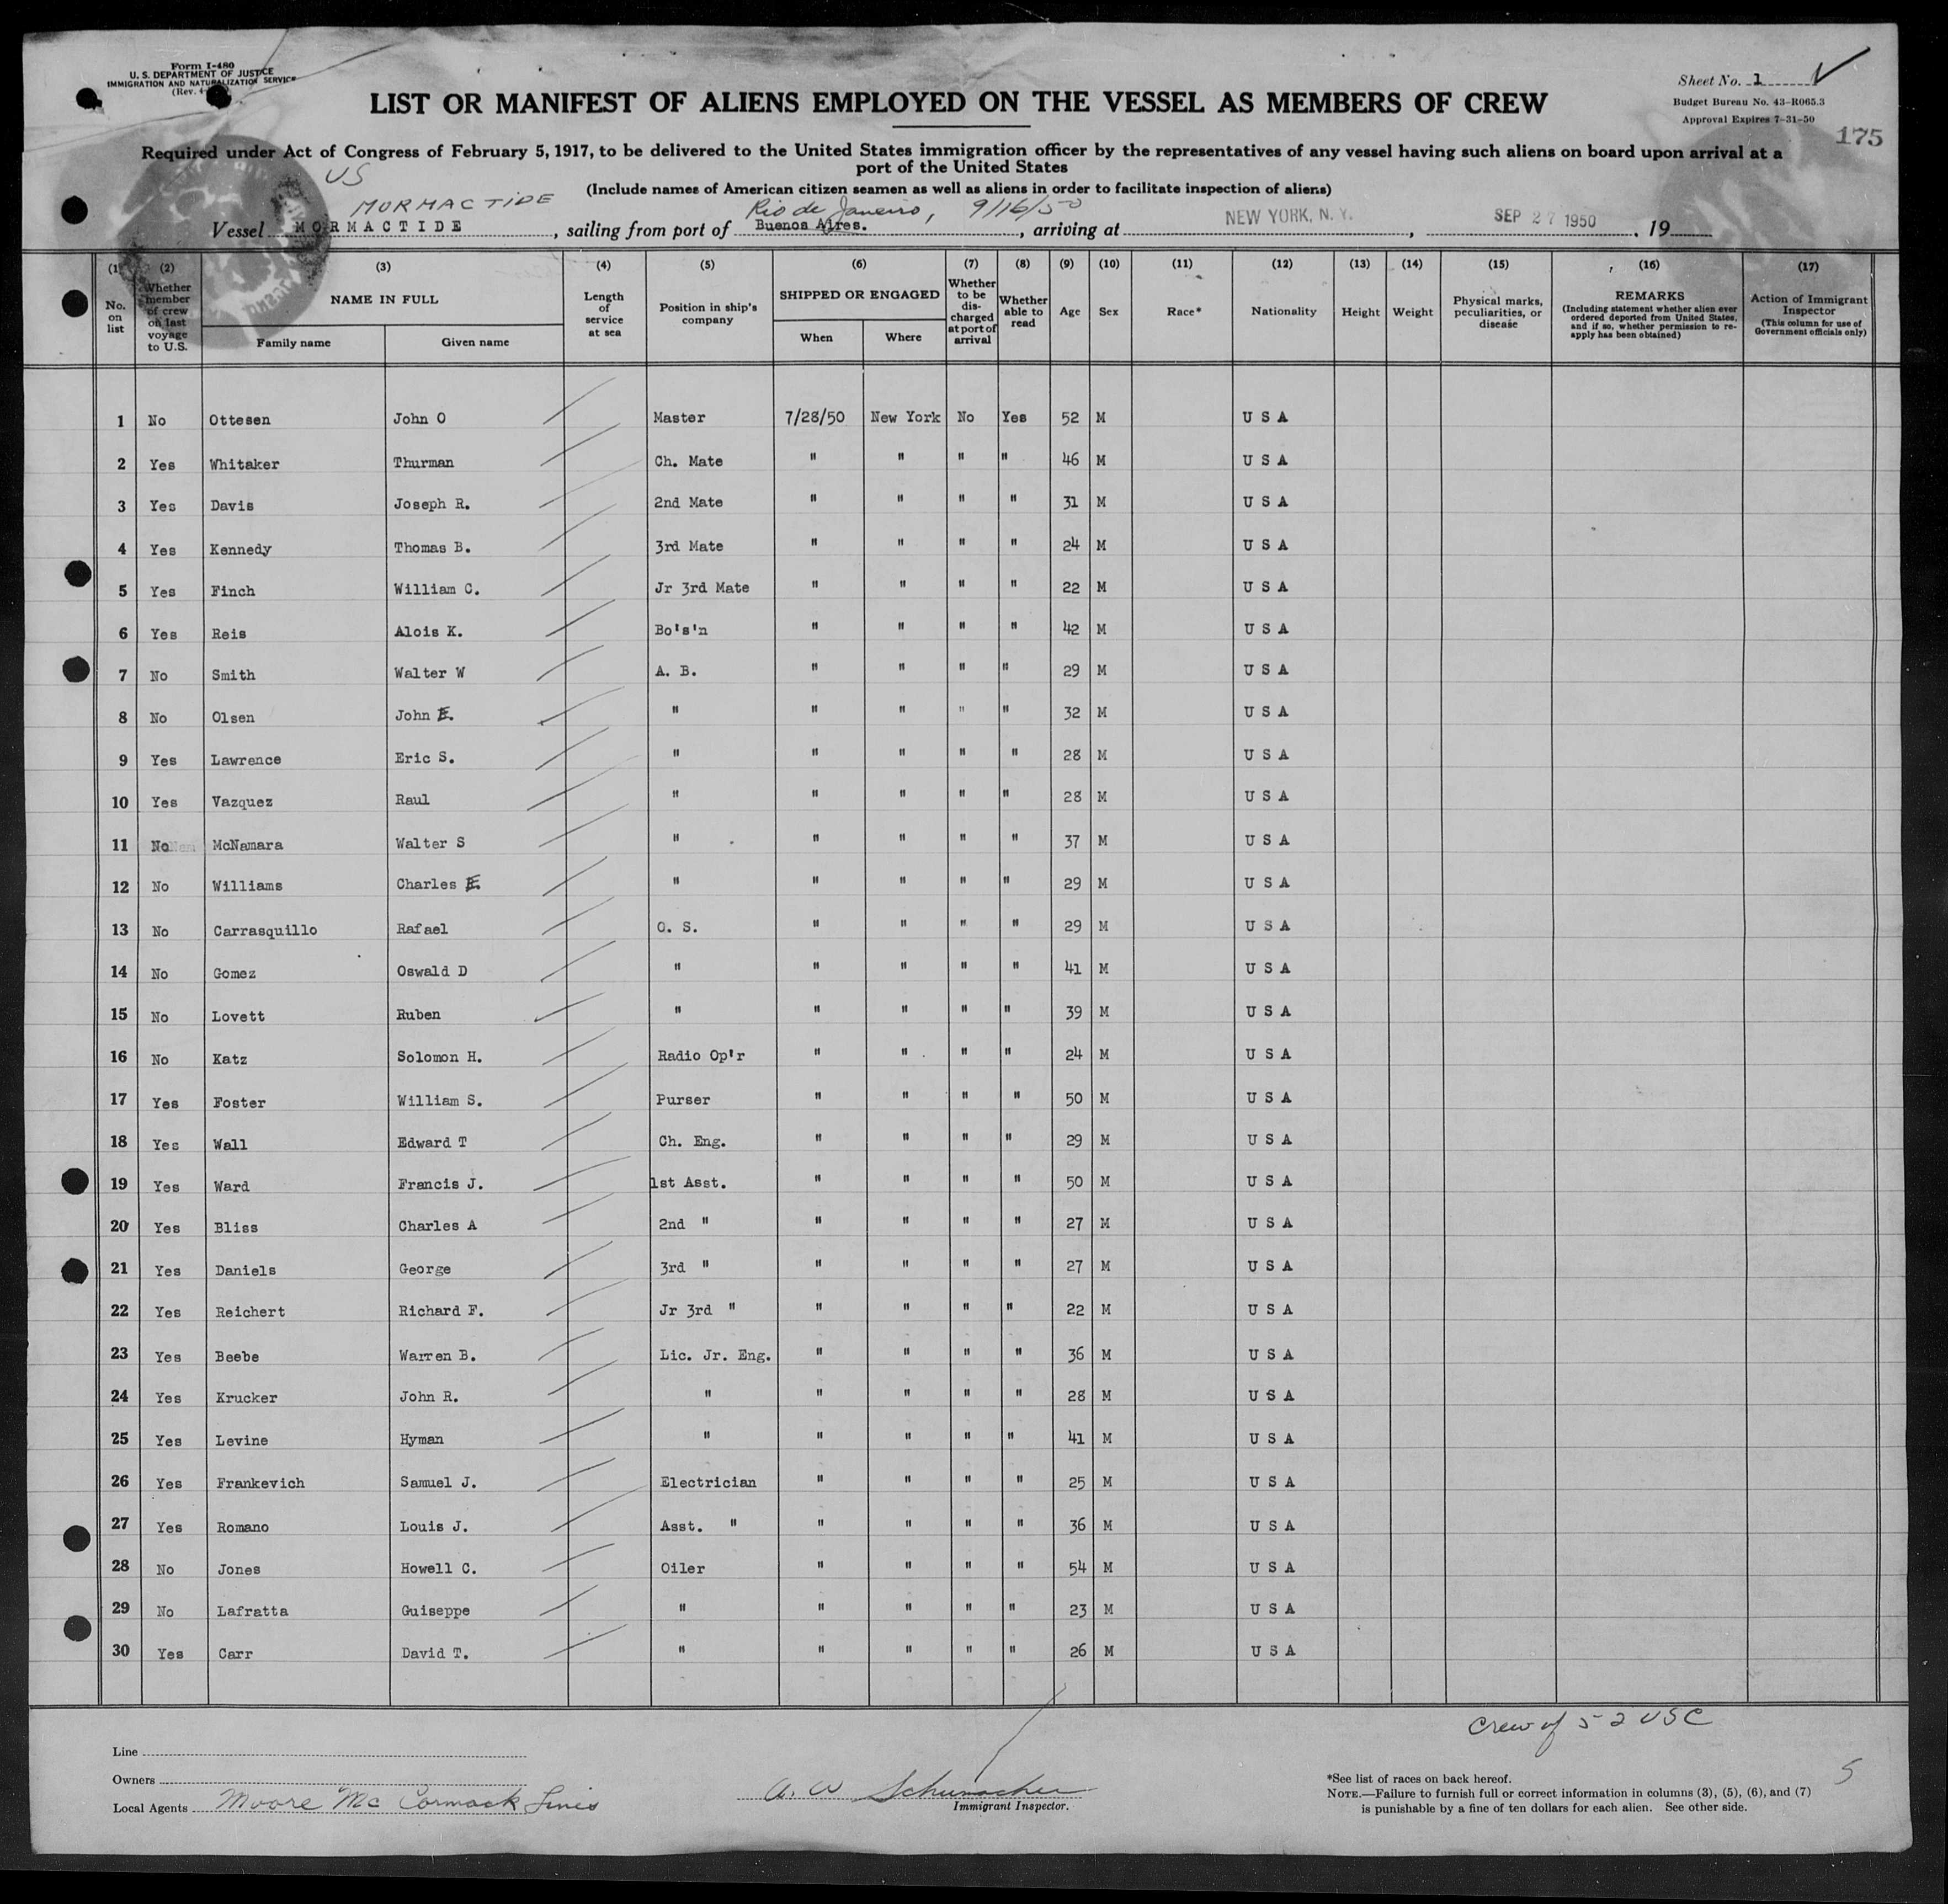 Form I-480
U. S. DEPARTMENT OF JUSTICE
IMMIGRATION AND NATURALIZATION SERVICE
(Rev.
Sheet No. 1
Budget Bureau No. 43-R065.3
Approval Expires 7-31-50
175
LIST OR MANIFEST OF ALIENS EMPLOYED ON THE VESSEL AS MEMBERS OF CREW
Required under Act of Congress of February 5, 1917, to be delivered to the United States immigration officer by the representatives of any vessel having such aliens on board upon arrival at a
port of the United States
(Include names of American citizen seamen as well as aliens in order to facilitate inspection of aliens)
US
MORMACTIDE
Rio de Janeiro, 9/16/50
Vessel MORMACTIDE, sailing from port of Buenos Aires., arriving at NEW YORK, N. Y., SEP 27 1950, 19
(1) (2) (3) (4) (5) (6) (7) (8) (9) (10) (11) (12) (13) (14) (15) (16) (17)
No. on list
Whether member of crew on last voyage to U.S.
NAME IN FULL
Family name Given name
Length of service at sea
Position in ship's company
SHIPPED OR ENGAGED
When Where
Whether to be discharged at port of arrival
Whether able to read
Age Sex Race* Nationality Height Weight
Physical marks, peculiarities, or disease
REMARKS
(Including statement whether alien ever ordered deported from United States, and if so, whether permission to reapply has been obtained)
Action of Immigrant Inspector
(This column for use of Government officials only)
1 No Ottesen John O Master 7/28/50 New York No Yes 52 M U S A
2 Yes Whitaker Thurman Ch. Mate " " " " 46 M U S A
3 Yes Davis Joseph R. 2nd Mate " " " " 31 M U S A
4 Yes Kennedy Thomas B. 3rd Mate " " " " 24 M U S A
5 Yes Finch William C. Jr 3rd Mate " " " " 22 M U S A
6 Yes Reis Alois K. Bo's'n " " " " 42 M U S A
7 No Smith Walter W A. B. " " " " 29 M U S A
8 No Olsen John E. " " " " " 32 M U S A
9 Yes Lawrence Eric S. " " " " " 28 M U S A
10 Yes Vazquez Raul " " " " " 28 M U S A
11 No McNamara Walter S " " " " " 37 M U S A
12 No Williams Charles E. " " " " " 29 M U S A
13 No Carrasquillo Rafael O. S. " " " " 29 M U S A
14 No Gomez Oswald D " " " " " 41 M U S A
15 No Lovett Ruben " " " " " 39 M U S A
16 No Katz Solomon H. Radio Op'r " " " " 24 M U S A
17 Yes Foster William S. Purser " " " " 50 M U S A
18 Yes Wall Edward T Ch. Eng. " " " " 29 M U S A
19 Yes Ward Francis J. 1st Asst. " " " " 50 M U S A
20 Yes Bliss Charles A 2nd " " " " " 27 M U S A
21 Yes Daniels George 3rd " " " " " 27 M U S A
22 Yes Reichert Richard F. Jr 3rd " " " " " 22 M U S A
23 Yes Beebe Warren B. Lic. Jr. Eng. " " " " 36 M U S A
24 Yes Krucker John R. " " " " " 28 M U S A
25 Yes Levine Hyman " " " " " 41 M U S A
26 Yes Frankevich Samuel J. Electrician " " " " 25 M U S A
27 Yes Romano Louis J. Asst. " " " " " 36 M U S A
28 No Jones Howell C. Oiler " " " " 54 M U S A
29 No Lafratta Guiseppe " " " " " 23 M U S A
30 Yes Carr David T. " " " " " 26 M U S A
Crew of 52 USC
Line
Owners
Local Agents Moore Mc Cormack Lines
A. W Schumacher
Immigrant Inspector.
*See list of races on back hereof.
NOTE.—Failure to furnish full or correct information in columns (3), (5), (6), and (7)
is punishable by a fine of ten dollars for each alien. See other side.
5